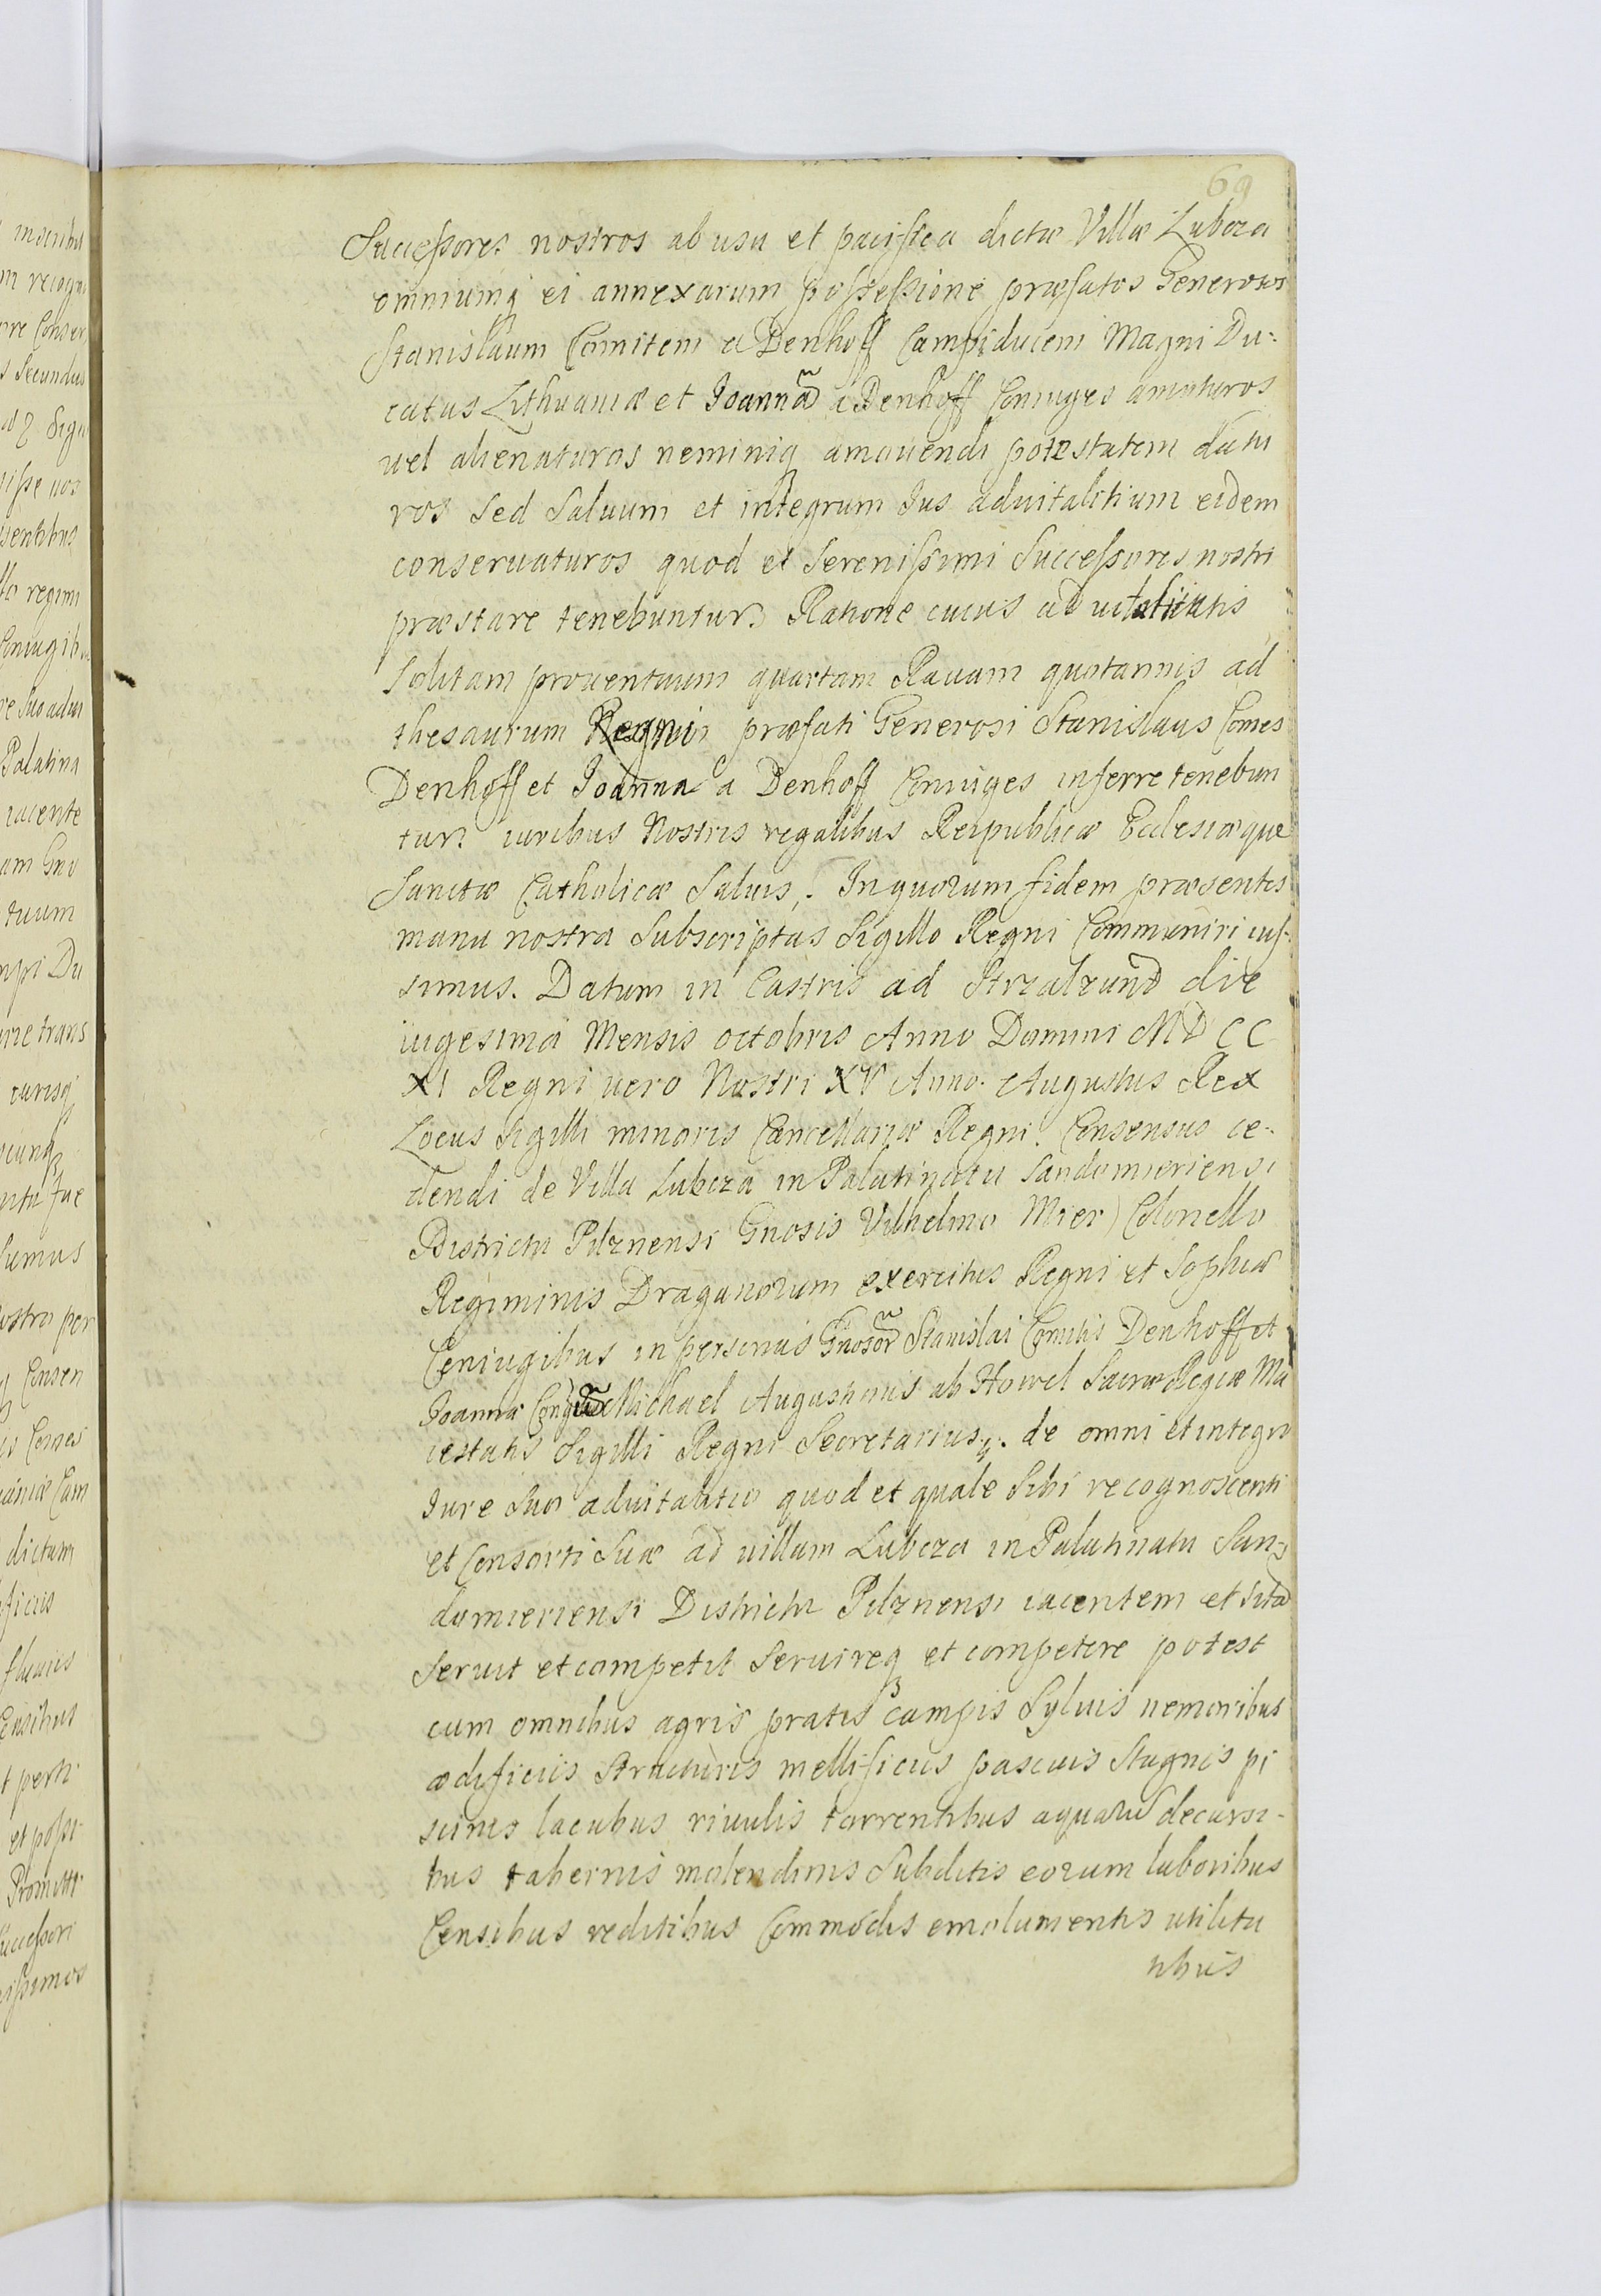 69
Successores nostros ab usu et pacifica dictæ Villæ Lubcza
omniumq ei annexarum possessione præfatos Generosos
Stanislaum Comitem a Denhoff Campiducem Magni Du-
catus Lithuaniæ et Joannã a Denhoff Coniuges amoturos
uel alienaturos neminiq amouendi potestatem datu
ros Sed Saluum et integrum Jus aduitalitium eidem
conseruaturos quod et Serenissimi Successores nostri
præstare tenebuntur. Ratione cuius aduitalitatis
Solitam prouentuum quartam Rauam quotannis ad
thesaurum Regni præfati Generosi Stanislaus Comes
Denhoff et Joanna a Denhoff Coniuges inferre tenebun
tur iuribus Nostris regalibus Reipublicæ Ecclesiæque
Sanctæ Catholicæ Saluis, . In quorum fidem præsentes
manu nostra Subscriptas Sigillo Regni Communiri ius-
simus. Datum in Castris ad Strzalzund die
uigesima Mensis octobris Anno Domini MDCC
XI Regni uero Nostri XV Anno. Augustus Rex
Locus Sigilli minoris Cancellariæ Regni. Consensus ce-
dendi de Villa Lubcza in Palatinatu Sandomieriensi
Districtu Pilznensi Gnosis Vilhelmo Mier Colonello
Regiminis Draganorum exercitus Regni et Sophiæ
Coniugibus in personas Gnosor Stanislai Comitis Denhoff et
Joannæ Michael Augustinus ab Howel Sacræ Regiæ Ma
iestatis Sigilli Regni Secretarius, . de omni et integro
Jure Suo aduitalitio quod et quale Sibi recognoscenti
et Consorti Suæ ad uillam Lubcza in Palatinatu San-
domieriensi Districtu Pilznensi iacentem et sitã
Seruit et competit Seruireq et competere potest
cum omnibus agris pratis campis Syluis nemoribus
ædificiis Structuris mellificiis pascuis Stagnis pi
scinis lacubus riuulis torrentibus aquarũ decursi-
bus tabernis molendinis Subditis eorum laboribus
Censibus reditibus Commodis emolumentis utilita
tibus